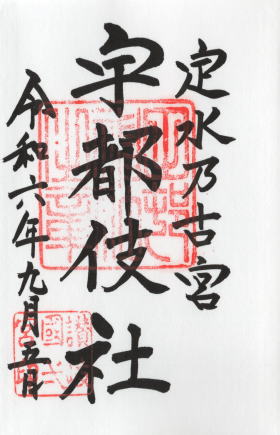 定水乃古宮
宇都伎社
令和六年九月五日